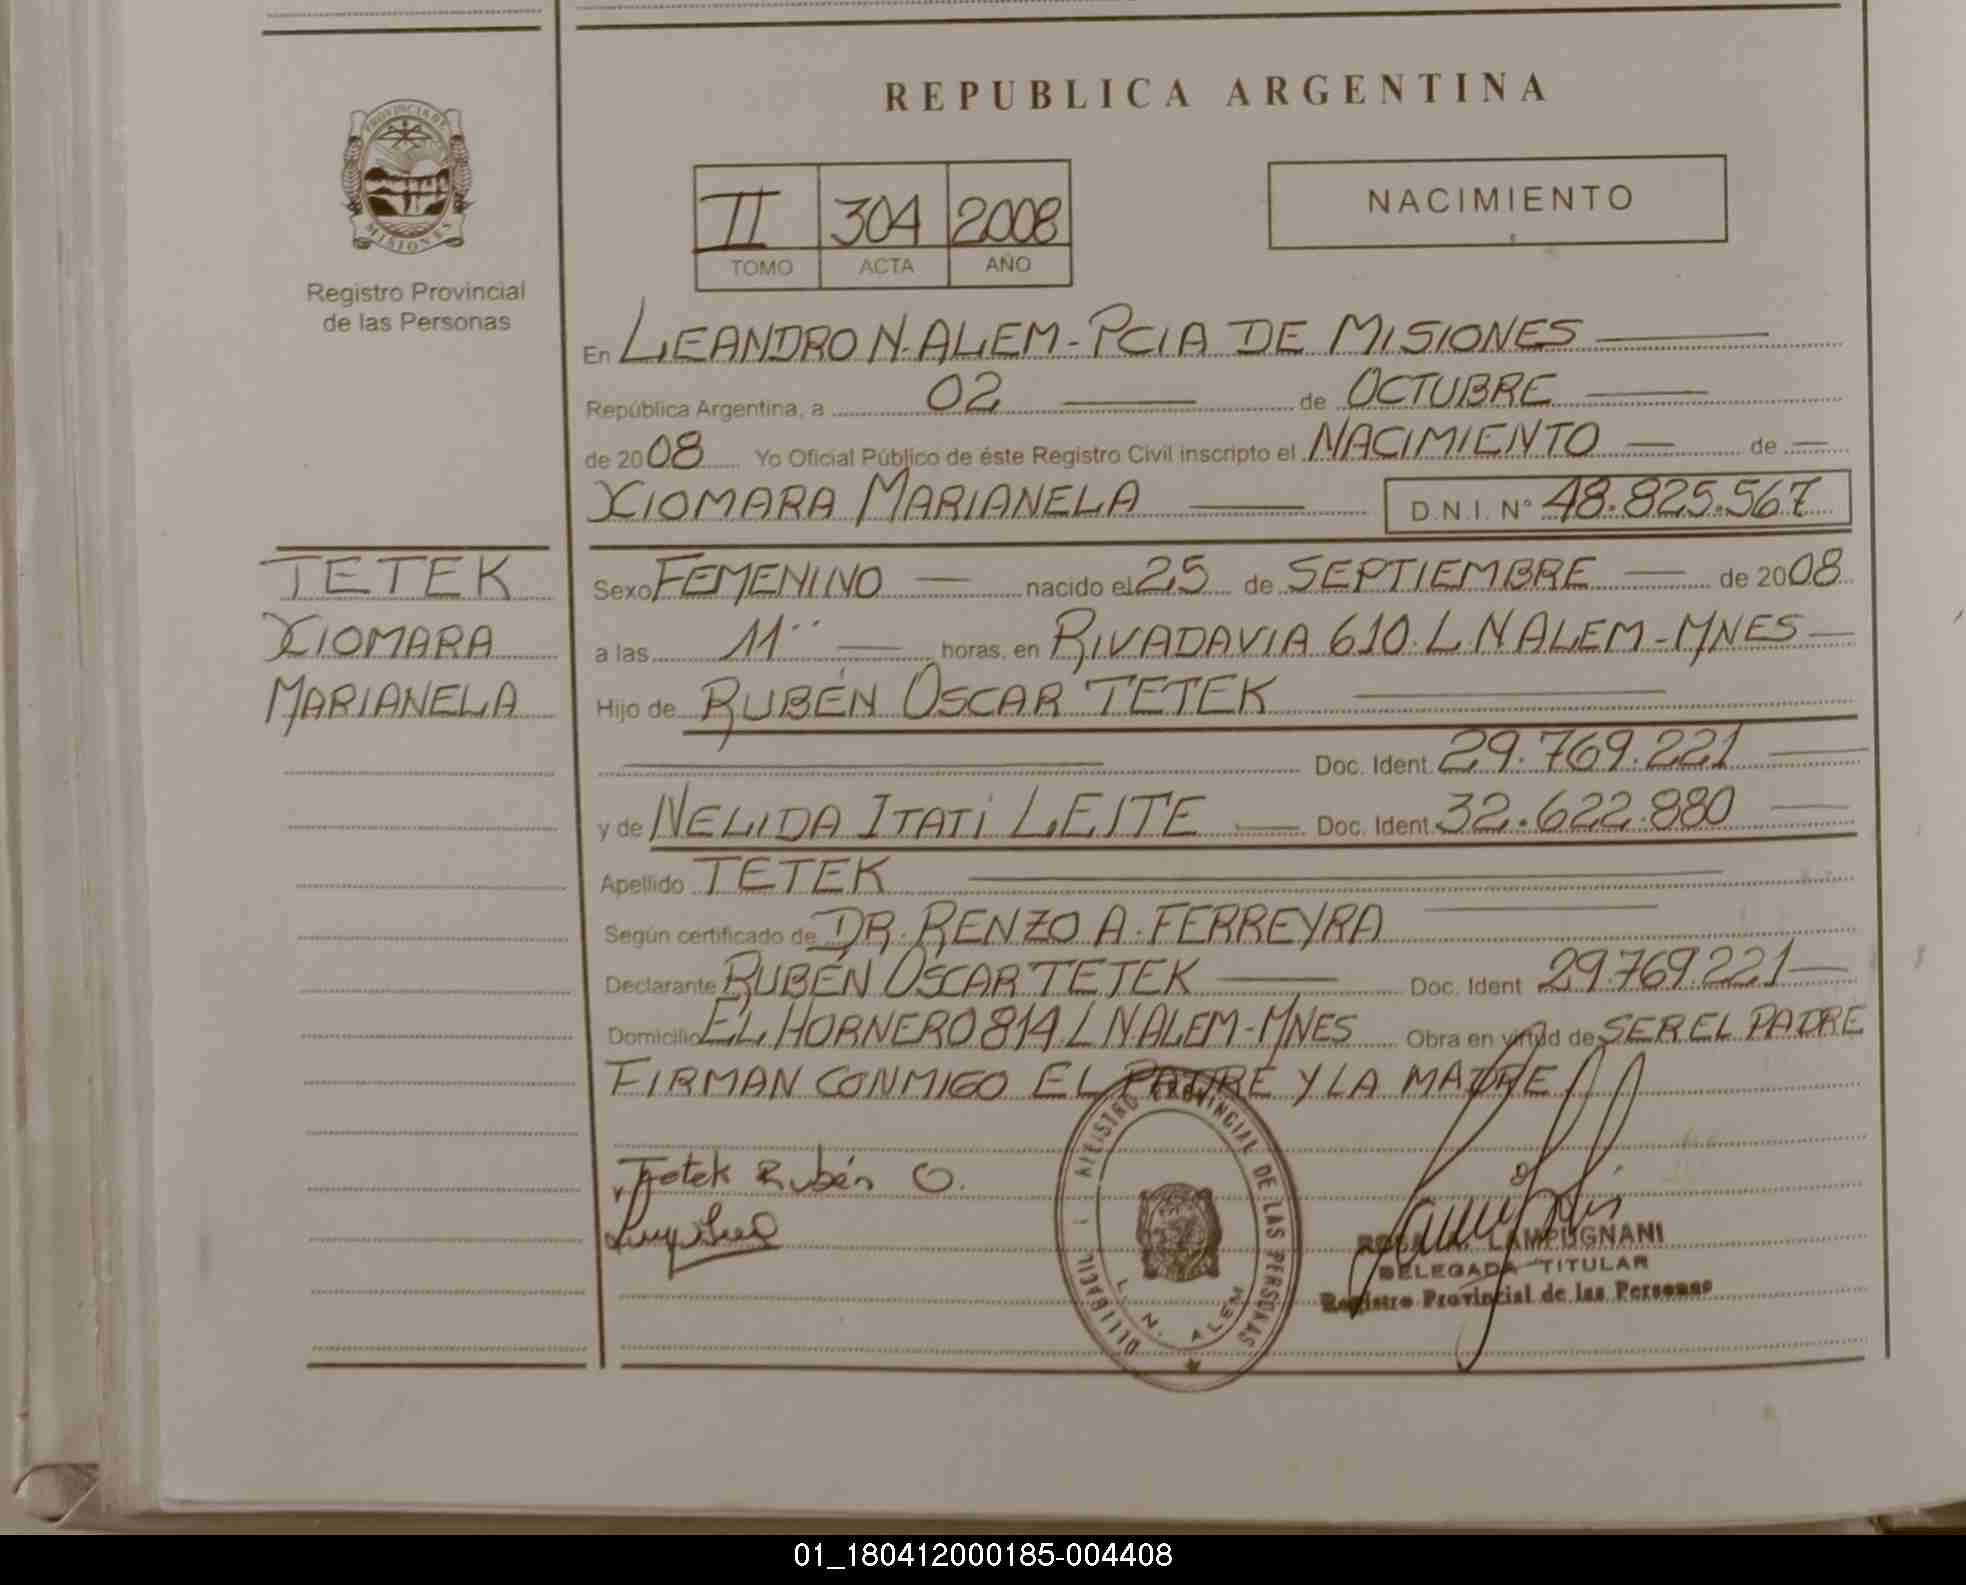 REPUBLICA ARGENTINA
PROVINCIA DE
MISIONES
Registro Provincial
de las Personas
II 304 2008
TOMO ACTA AÑO
NACIMIENTO
En LEANDRO N. ALEM - PCIA DE MISIONES
República Argentina, a 02 de OCTUBRE
de 2008 Yo Oficial Público de éste Registro Civil inscripto el NACIMIENTO de
XIOMARA MARIANELA D.N.I. N° 48.825.567
TETEK
XIOMARA
MARIANELA
Sexo FEMENINO nacido el 25 de SEPTIEMBRE de 2008
a las 11 horas, en RIVADAVIA 610. L.N ALEM - MNES
Hijo de RUBÉN OSCAR TETEK
Doc. Ident. 29.769.221
y de NELIDA ITATÍ LEITE Doc. Ident. 32.622.880
Apellido TETEK
Según certificado de DR. RENZO A. FERREYRA
Declarante RUBÉN OSCAR TETEK Doc. Ident 29.769.221
Domicilio EL HORNERO 814. L N ALEM - MNES Obra en virtud de SER EL PADRE
FIRMAN CONMIGO EL PADRE Y LA MADRE
Tetek Rubén O.
REGISTRO PROVINCIAL DE LAS PERSONAS
L. N. ALEM
LAMPUGNANI
DELEGADA TITULAR
Registro Provincial de las Personas
01_180412000185-004408